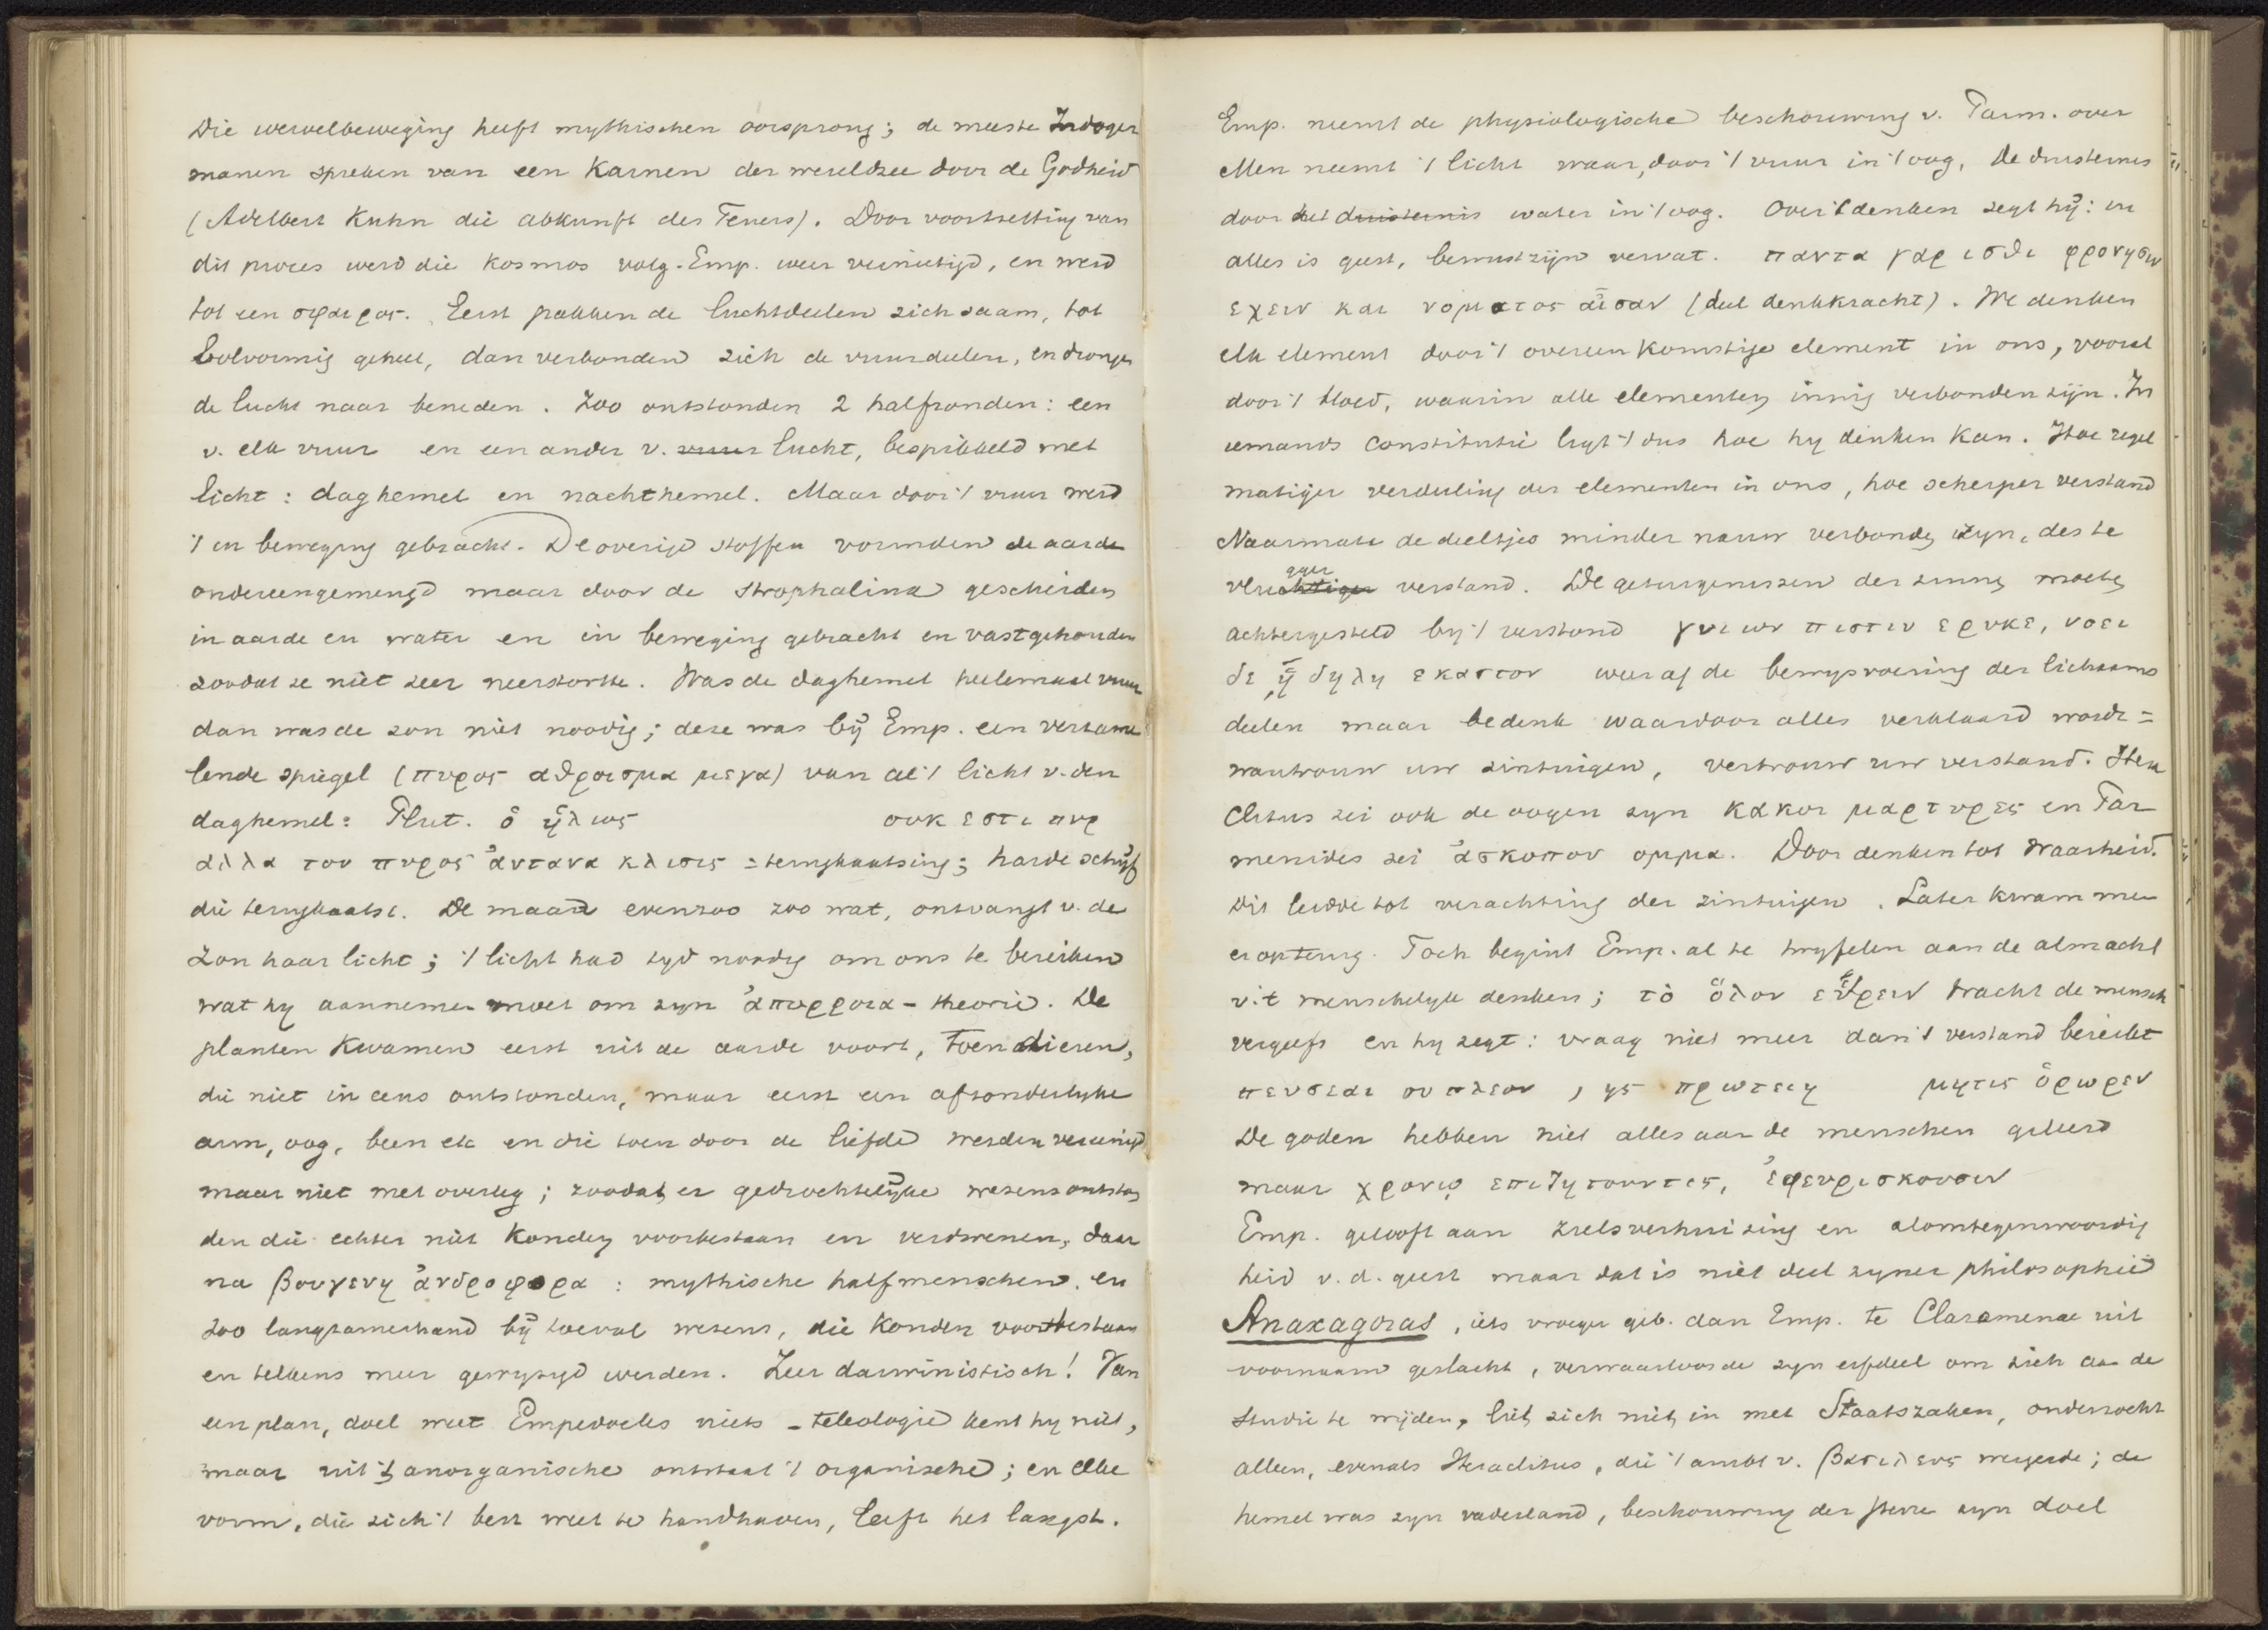 Die wervelbeweging heeft mythischen oorsprong; de meeste Indoger
manen spreken van een Karnen der wereldzee door de Godheid
(Adelbert Kuhn die abkunft des Feuers). Door voortzetting van
dit proces werd die kosmos volg. Emp. weer vernietigd, en werd
tot een σφαιρος. Eerst pakken de luchtdeelen zich saam, tot
bolvormig geheel, dan verbonden zich de vuurdeelen, en drongen
de lucht naar beneden. Zoo ontstonden 2 halfronden: een
v. elk vuur en een ander v. vuur lucht, bespikkeld met
licht: daghemel en nachthemel. Maar door 't vuur werd
't in beweging gebracht. De overige stoffen vormden de aarde
ondereengemengd maar door de strophalinx gescheiden
in aarde en water en in beweging gebracht en vastgehouden
zoodat ze niet zeer neerstortte. Was de daghemel heelemaal vuur
dan was de zon niet noodig; deze was bij Emp. een verzame
lende spiegel (πυρος αθροισμα μεγα) van al 't licht v. den
daghemel: Plut. ὁ ἡλιος ουκ εστι πυρ
αλλα του πυρος ἀντανα κλισις = terugkaatsing; harde schijf
die terugkaatst. De maan evenzoo zoo wat, ontvangt v. de
zon haar licht; 't licht had tyd noodig om ons te bereiken
wat hy aannemen moet om zyn ἀπορροια - theorie. De
planten kwamen eerst uit de aarde voort, toen dieren,
die niet in eens ontstonden, maar eerst een afzonderlyke
arm, oog, been etc en die toen door de liefde werden vereenigd
maar niet met overleg; zoodat er gedrochtelijke wezens ontston
den die echter niet konden voortbestaan en verdwenen, daar
na βουγενη ἀνδροφορα : mythische halfmenschen. en
zoo langzamerhand bij toeval wezens, die konden voortbestaan
en telkens meer gewyzigd werden. Zeer darwinistisch! Van
een plan, doel weet Empedocles niets - teleologie kent hy niet,
maar uit 't anorganische ontstaat 't organische; en elke
vorm, die zich 't best weet te handhaven, leeft het langst.
Emp. neemt de physiologische beschouwing v. Parm. over
Men neemt 't licht waar, door 't vuur in 't oog, de duisternis
door het duisternis water in 't oog. Over 't denken zegt hij: in
alles is geest, bewustzijn vervat. παντα γαρ ισθι φρονησιν
εχειν και νοματος αἰσαν (deel denkkracht). We denken
elk element door 't overeenkomstige element in ons, vooral
door 't bloed, waarin alle elementen innig verbonden zijn. In
iemands constitutie ligt 't dus hoe hy denken kan. Hoe regel
matiger verdeeling der elementen in ons, hoe scherper verstand
Naarmate de deeltjes minder nauw verbonden zyn, des te
vluchtiger gger verstand. De getuigenissen der zinnen moeten
achtergesteld by 't verstand γυιων πιστιν ερυκε, νοει
δε ᾗ δηλη εκαστον weer af de bewysvoering der lichaams
deelen maar bedenk waardoor alles verklaard wordt =
wantrouw uw zintuigen, vertrouw uw verstand. Hera
clitus zei ook de oogen zyn κακοι μαρτυρες en Par
menides zei ἀσκοπον ομμα. Door denken tot waarheid.
Dit leidde tot verachting der zintuigen. Later kwam men
er op terug. Toch begint Emp. al te twyfelen aan de almacht
v. 't menschelyk denken; τὸ ὅλον εὑρειν tracht de mensch
vergeefs en hy zegt: vraag niet meer dan 't verstand bereikt
πευσεαι ου πλεον , ηε προτειη μητις ὀρωρεν
De goden hebben niet alles aan de menschen geleerd
maar χρονῳ επιζητουντες, ἐφευρισκουσιν
Emp. gelooft aan zielsverhuizing en alomtegenwoordig
heid v. d. geest maar dat is niet deel zyner philosophie
Anaxagoras, iets vroeger geb. dan Emp. te Clazomenae uit
voornaam geslacht, verwaarloosde zyn erfdeel om zich aan de
studie te wijden, liet zich niet in met Staatszaken, onderzocht
alleen, evenals Heraclitus, die 't ambt v. βασιλευς weigerde; de
hemel was zyn vaderland, beschouwing der sterren zyn doel